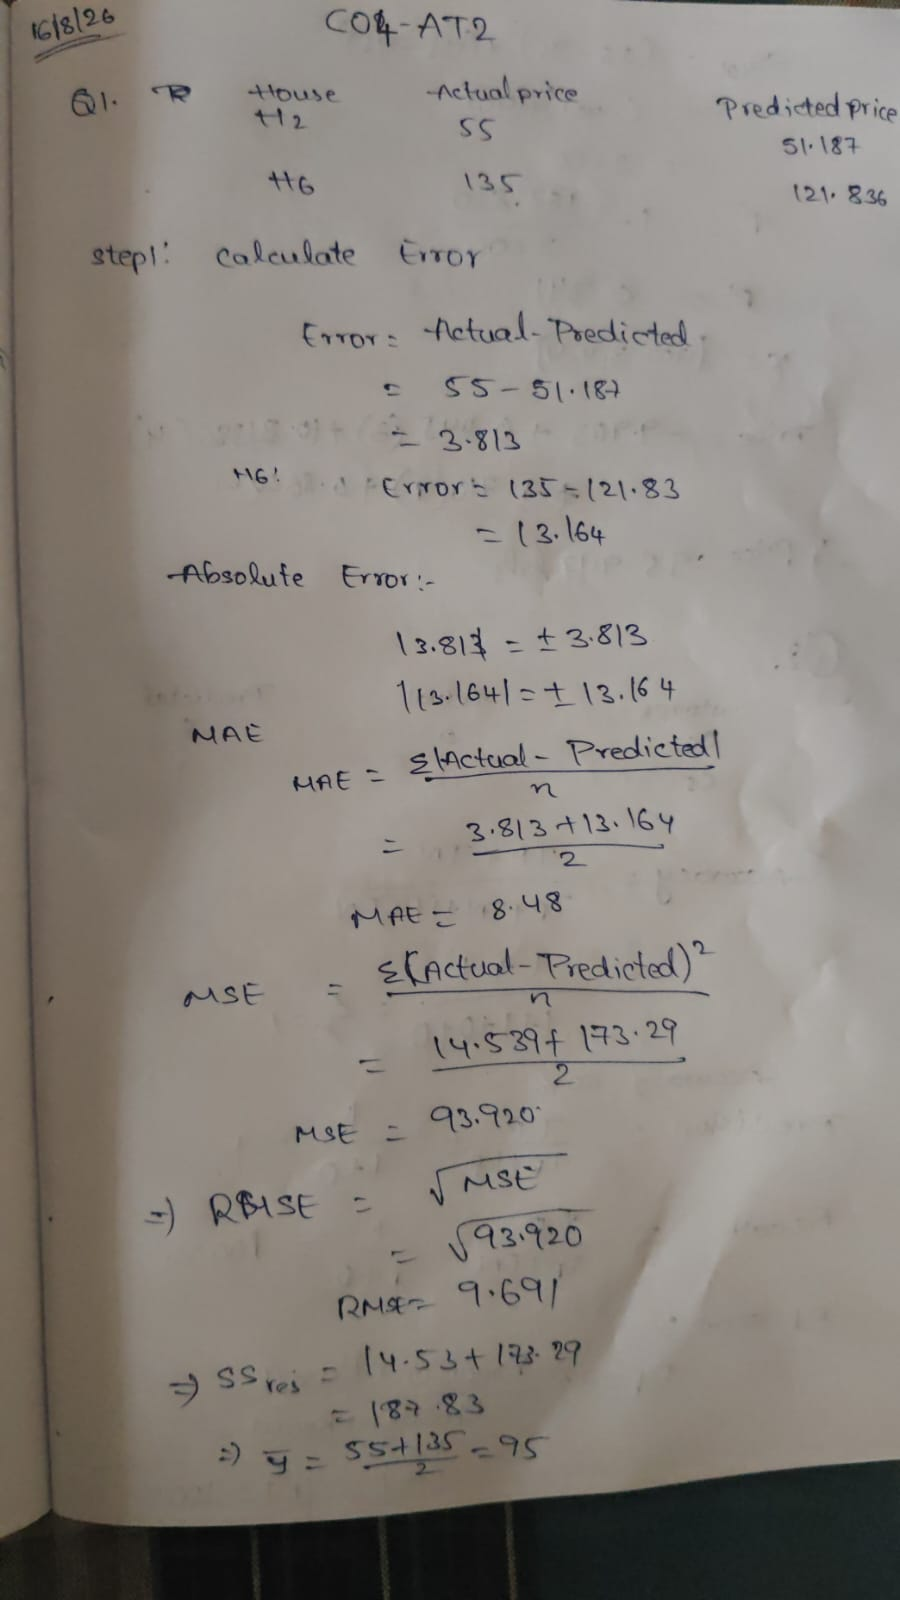 16/8/26
CO4-AT2
Q1. House Actual price Predicted price
H2 55 51.187
H6 135 121.836
step1: calculate Error
Error = Actual - Predicted
= 55 - 51.187
= 3.813
H6: Error = 135 - 121.83
= 13.164
Absolute Error :-
|3.813| = ± 3.813
|13.164| = ± 13.164
MAE
MAE = Σ|Actual - Predicted|
n
= 3.813 + 13.164
2
MAE = 8.48
MSE = Σ(Actual - Predicted)²
n
= 14.539 + 173.29
2
MSE = 93.920
⇒ RMSE = √MSE
= √93.920
RMSE = 9.691
⇒ SS res = 14.53 + 173.29
= 187.83
⇒ ȳ = 55+135 = 95
2